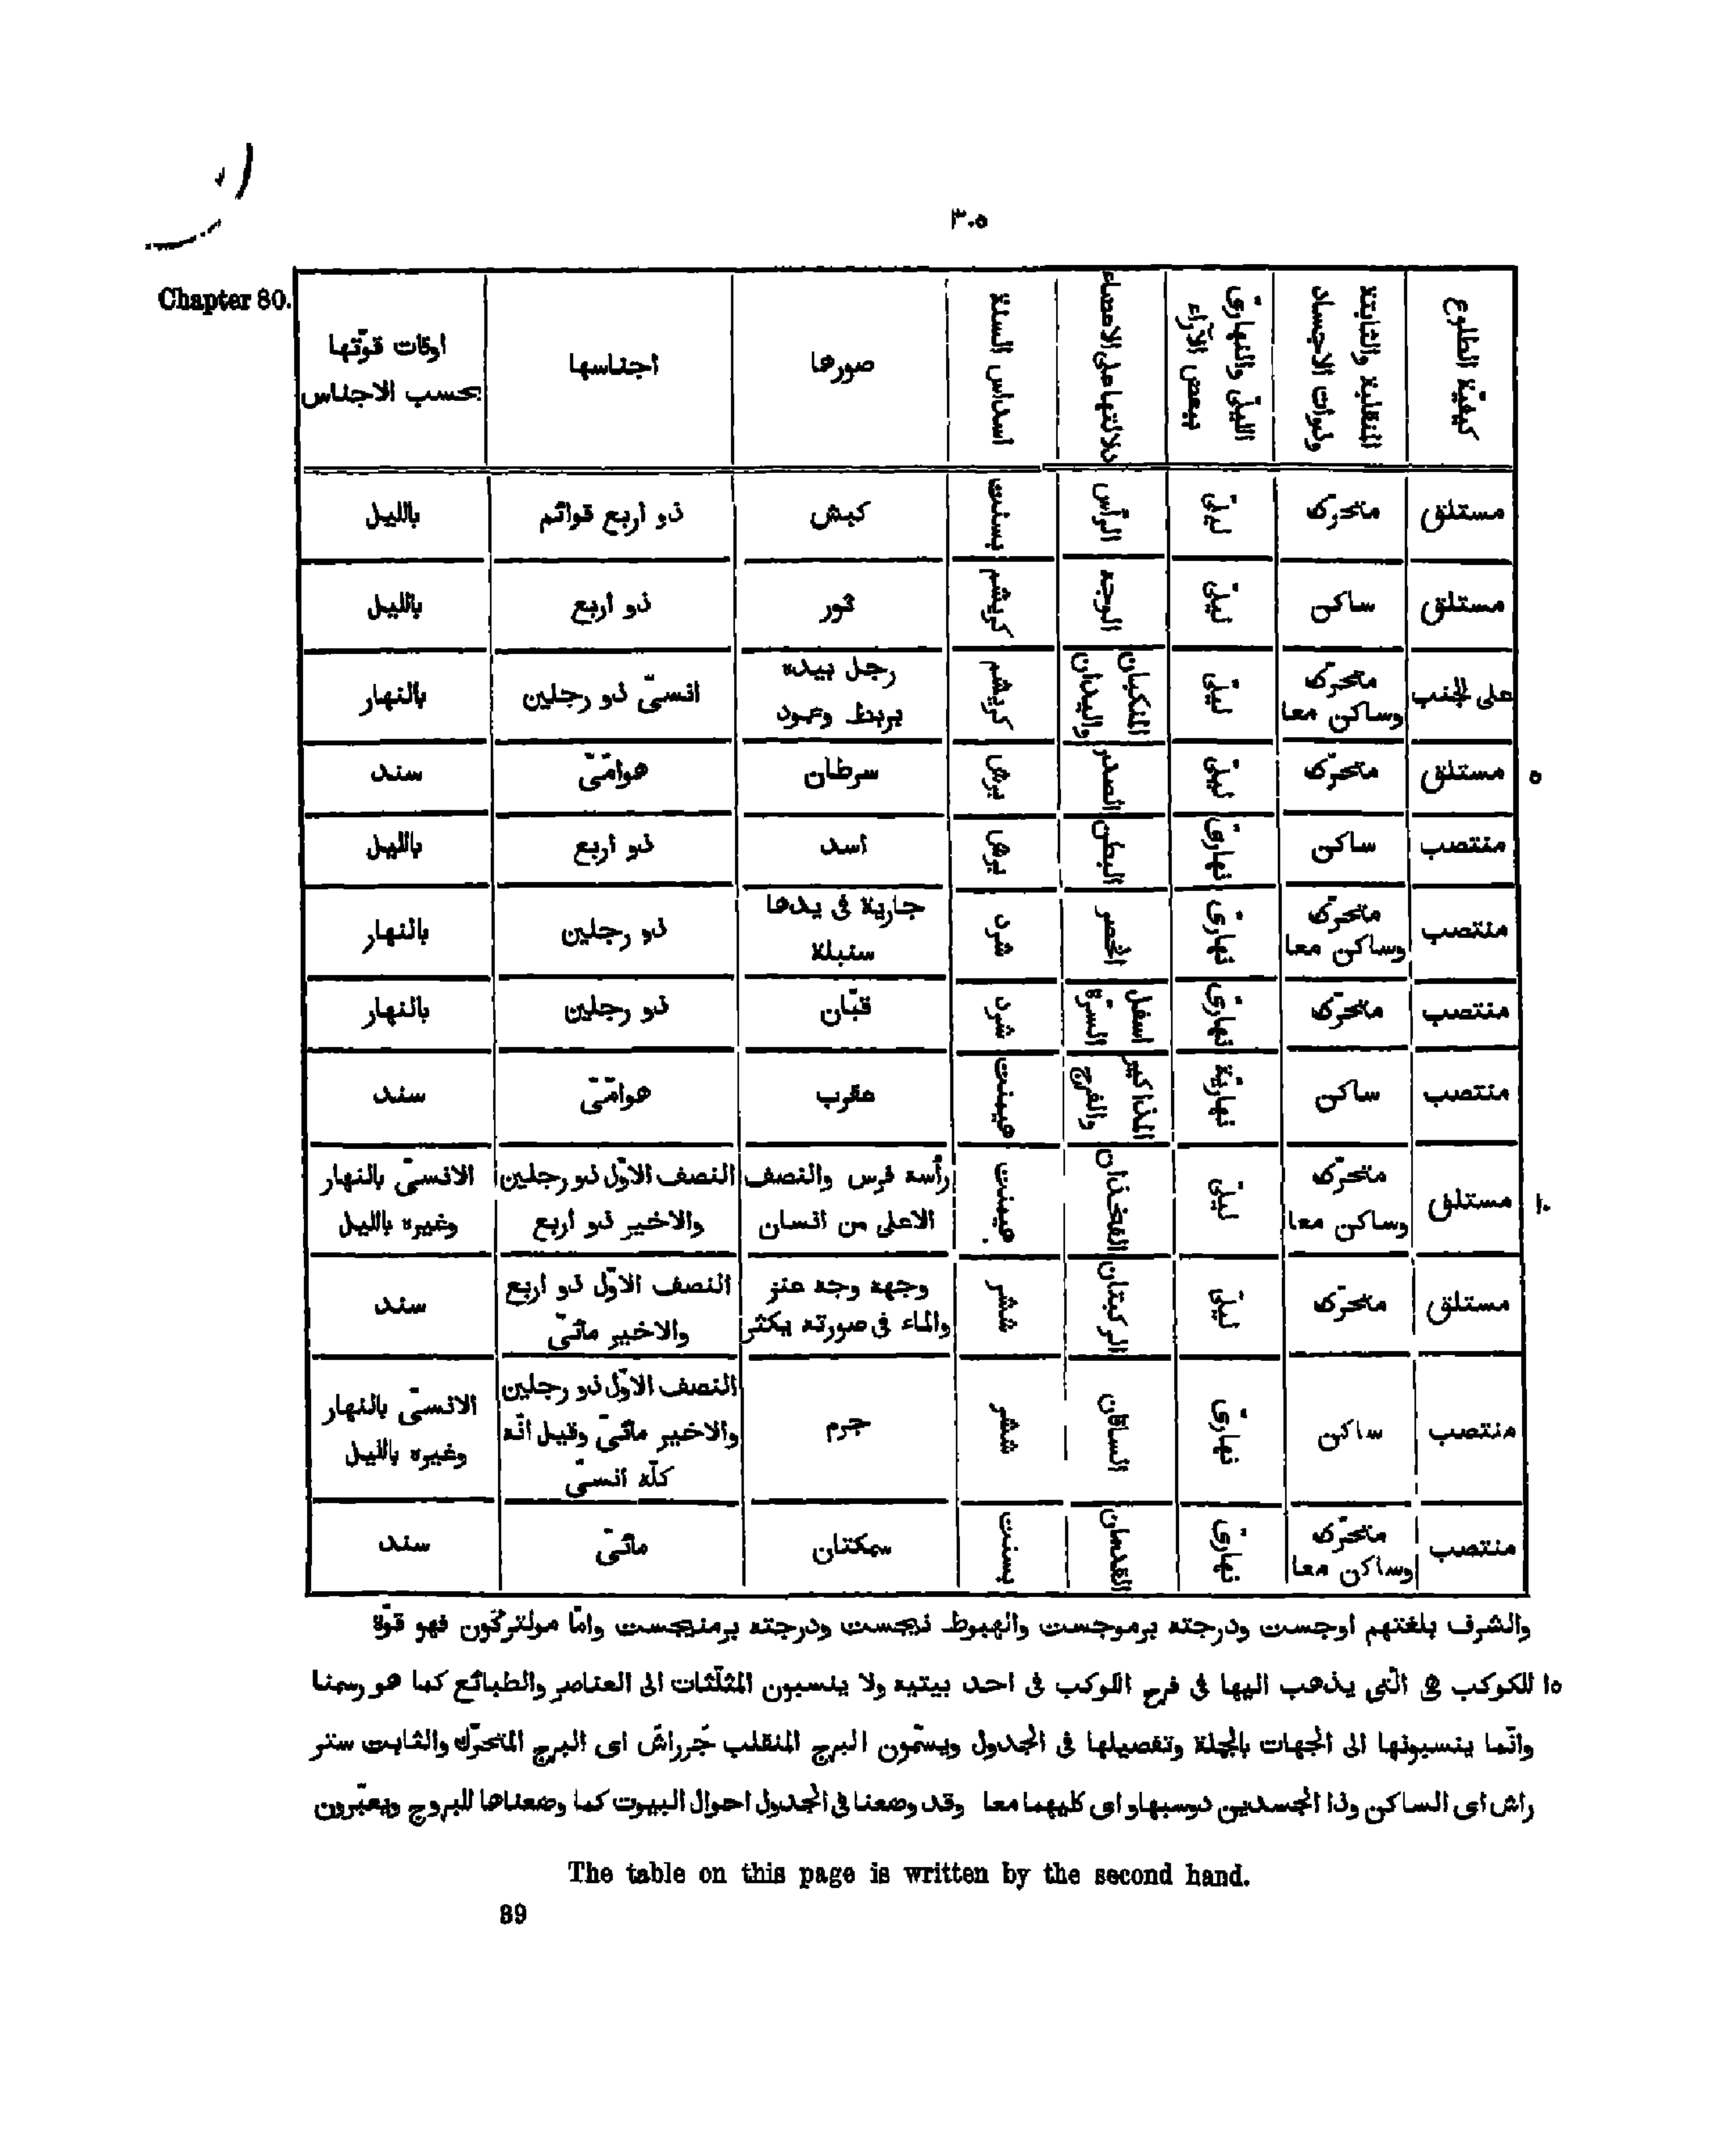 ٣٠٥
Chapter 80.
كيفيّة الطلوع | المنقلبة والثابتة وذوات الاجساد | الليلىّ والنهارىّ ببعض الآراء | دلالتها على الاعضاء | اسداس السنة | صورها | اجناسها | اوقات قوّتها بحسب الاجناس
مستلق | متحرّك | ليلىّ | الرأس | بسنت | كبش | ذو اربع قوائم | بالليل
مستلق | ساكن | ليلىّ | الوجه | كريشم | ثور | ذو اربع | بالليل
على الجنب | متحرّك وساكن معا | ليلىّ | المنكبان واليدان | كريشم | رجل بيده بربط وعمود | انسىّ ذو رجلين | بالنهار
مستلق | متحرّك | ليلىّ | الصدر | برش | سرطان | هوامّىّ | سند
٥
منتصب | ساكن | نهارىّ | البطن | برش | اسد | ذو اربع | بالليل
منتصب | متحرّك وساكن معا | نهارىّ | الخصر | شرد | جارية فى يدها سنبلة | ذو رجلين | بالنهار
منتصب | متحرّك | نهارىّ | اسفل السرّة | شرد | قبّان | ذو رجلين | بالنهار
منتصب | ساكن | نهاريّة | المذاكير والفرج | هيمنت | عقرب | هوامّىّ | سند
مستلق | متحرّك وساكن معا | ليلىّ | الفخذان | هيمنت | رأسه فرس والنصف الاعلى من انسان | النصف الاوّل ذو رجلين والاخير ذو اربع | الانسىّ بالنهار وغيره بالليل
١٠
مستلق | متحرّك | ليلىّ | الركبتان | ششر | وجهه وجه عنز والماء فى صورته يكثر | النصف الاوّل ذو اربع والاخير مائىّ | سند
منتصب | ساكن | نهارىّ | الساقان | ششر | جرم | النصف الاوّل ذو رجلين والاخير مائىّ وقيل انّه كلّه انسىّ | الانسىّ بالنهار وغيره بالليل
منتصب | متحرّك وساكن معا | نهارىّ | القدمان | بسنت | سمكتان | مائىّ | سند
والشرف بلغتهم اوجست ودرجته برموجست والهبوط نيجست ودرجته برمنيجست وامّا مولتركون فهو قوّة
١٥ للكوكب هى الّتى يذهب اليها فى فرح الكوكب فى احد بيتيه ولا ينسبون المثلّثات الى العناصر والطبائع كما هو رسمنا
وانّما ينسبونها الى الجهات بالجملة وتفصيلها فى الجدول ويسمّون البرج المنقلب جَرراش اى البرج المتحرّك والثابت ستر
راش اى الساكن وذا الجسدين دوسبهاو اى كليهما معا وقد وضعنا فى الجدول احوال البيوت كما وضعناها للبروج ويعبّرون
The table on this page is written by the second hand.
39